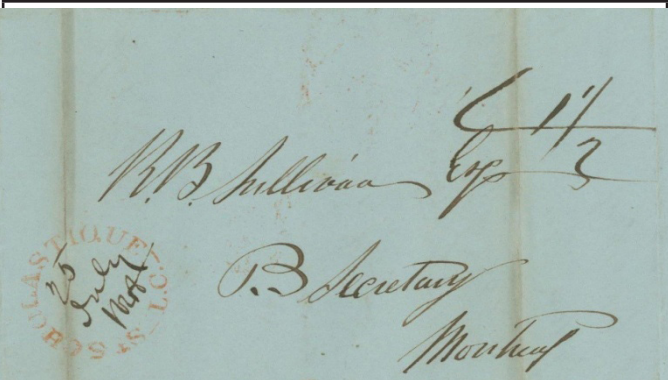 1/1/3
R.B. Sullivan Esqr
P. Secretary
Montreal
ST SCHOLASTIQUE L.C.
25
July